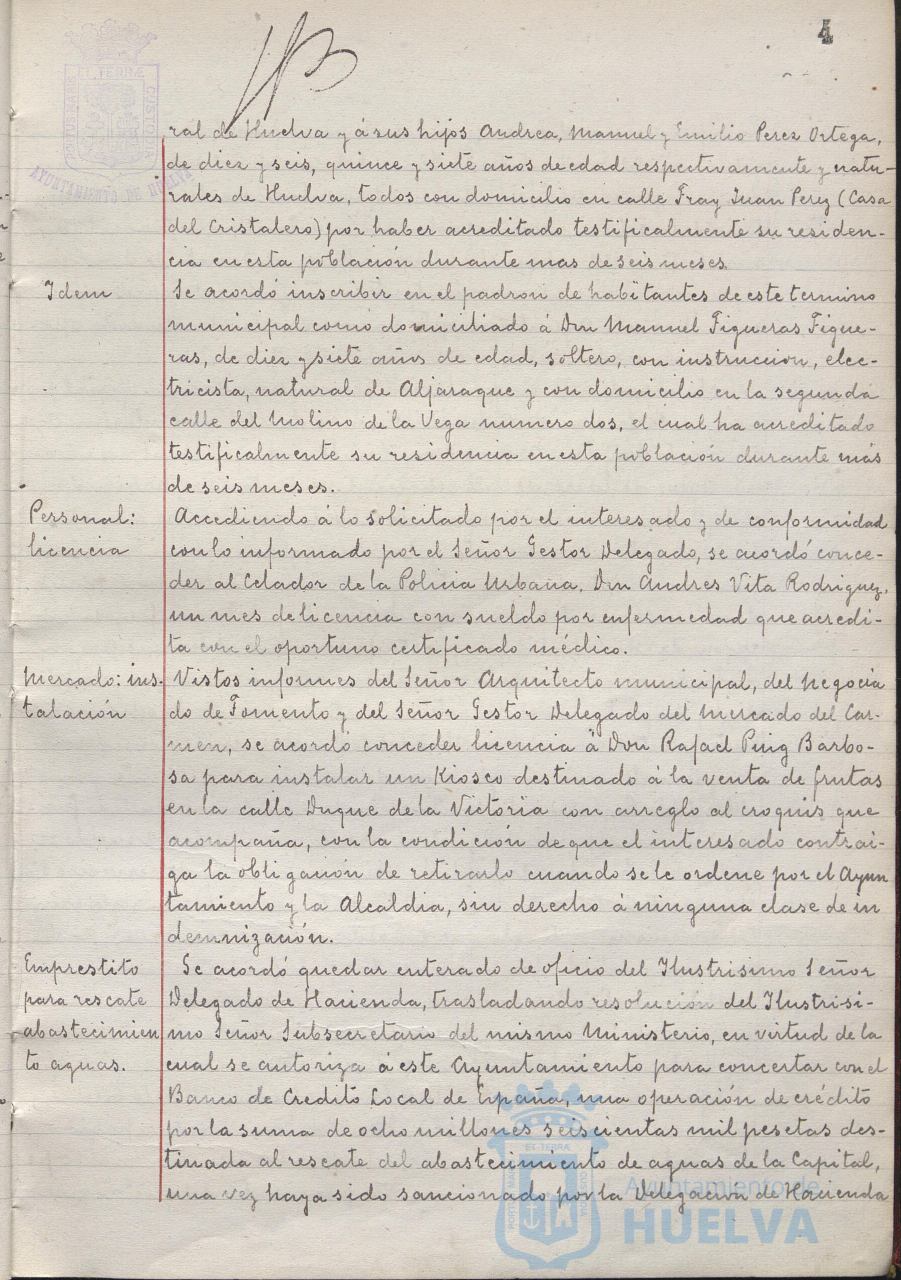 4
ral de Huelva y á sus hijos Andrea, Manuel y Emilio Perez Ortega,
de diez y seis, quince y siete años de edad respectivamente y natu-
rales de Huelva, todos con domicilio en calle Fray Juan Perez (Casa
del Cristalero) por haber acreditado testificalmente su residen-
cia en esta población durante mas de seis meses.
Idem
Se acordó inscribir en el padron de habitantes de este termino
municipal como domiciliado á Don Manuel Figueras Figue-
ras, de diez y siete años de edad, soltero, con instruccion, elec-
tricista, natural de Aljaraque y con domicilio en la segunda
calle del Molino de la Vega numero dos, el cual ha acreditado
testificalmente su residencia en esta población durante más
de seis meses.
Personal:
licencia
Accediendo á lo solicitado por el interesado y de conformidad
con lo informado por el Señor Gestor Delegado, se acordó conce-
der al Celador de la Policia Urbana, Don Andres Vita Rodriguez,
un mes de licencia con sueldo por enfermedad que acredi-
ta con el oportuno certificado médico.
Mercado: ins-
talación
Vistos informes del Señor Arquitecto municipal, del Negocia
do de Fomento y del Señor Gestor Delegado del Mercado del Car-
men, se acordó conceder licencia á Don Rafael Puig Barbo-
sa para instalar un Kiosco destinado á la venta de frutas
en la calle Duque de la Victoria con arreglo al croquis que
acompaña, con la condición de que el interesado contrai-
ga la obligación de retirarlo cuando se le ordene por el Ayun
tamiento y la Alcaldia, sin derecho á ninguna clase de in
demnización.
Emprestito
para rescate
abastecimien
to aguas.
Se acordó quedar enterado de oficio del Ilustrisimo Señor
Delegado de Hacienda, trasladando resolución del Ilustrisi-
mo Señor Subsecretario del mismo Ministerio, en virtud de la
cual se autoriza á este Ayuntamiento para concertar con el
Banco de Credito Local de España, una operación de crédito
por la suma de ocho millones seiscientas mil pesetas des-
tinada al rescate del abastecimiento de aguas de la Capital,
una vez haya sido sancionado por la Delegación de Hacienda
AYUNTAMIENTO DE HUELVA
Ayuntamiento de
HUELVA